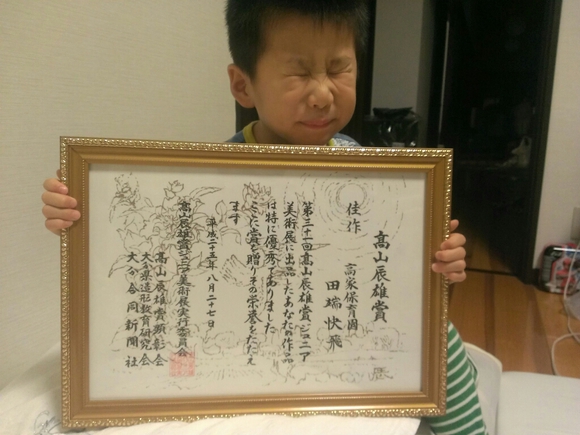 高山辰雄賞
佳作
高家保育園
田端快飛
第三十一回高山辰雄賞ジュニア
美術展に出品したあなたの作品
は特に優秀でありました
ここに賞を贈りその栄誉をたたえ
ます
平成二十五年八月二十七日
高山辰雄賞ジュニア美術展実行委員会
高山辰雄賞顕彰会
大分県造形教育研究会
大分合同新聞社